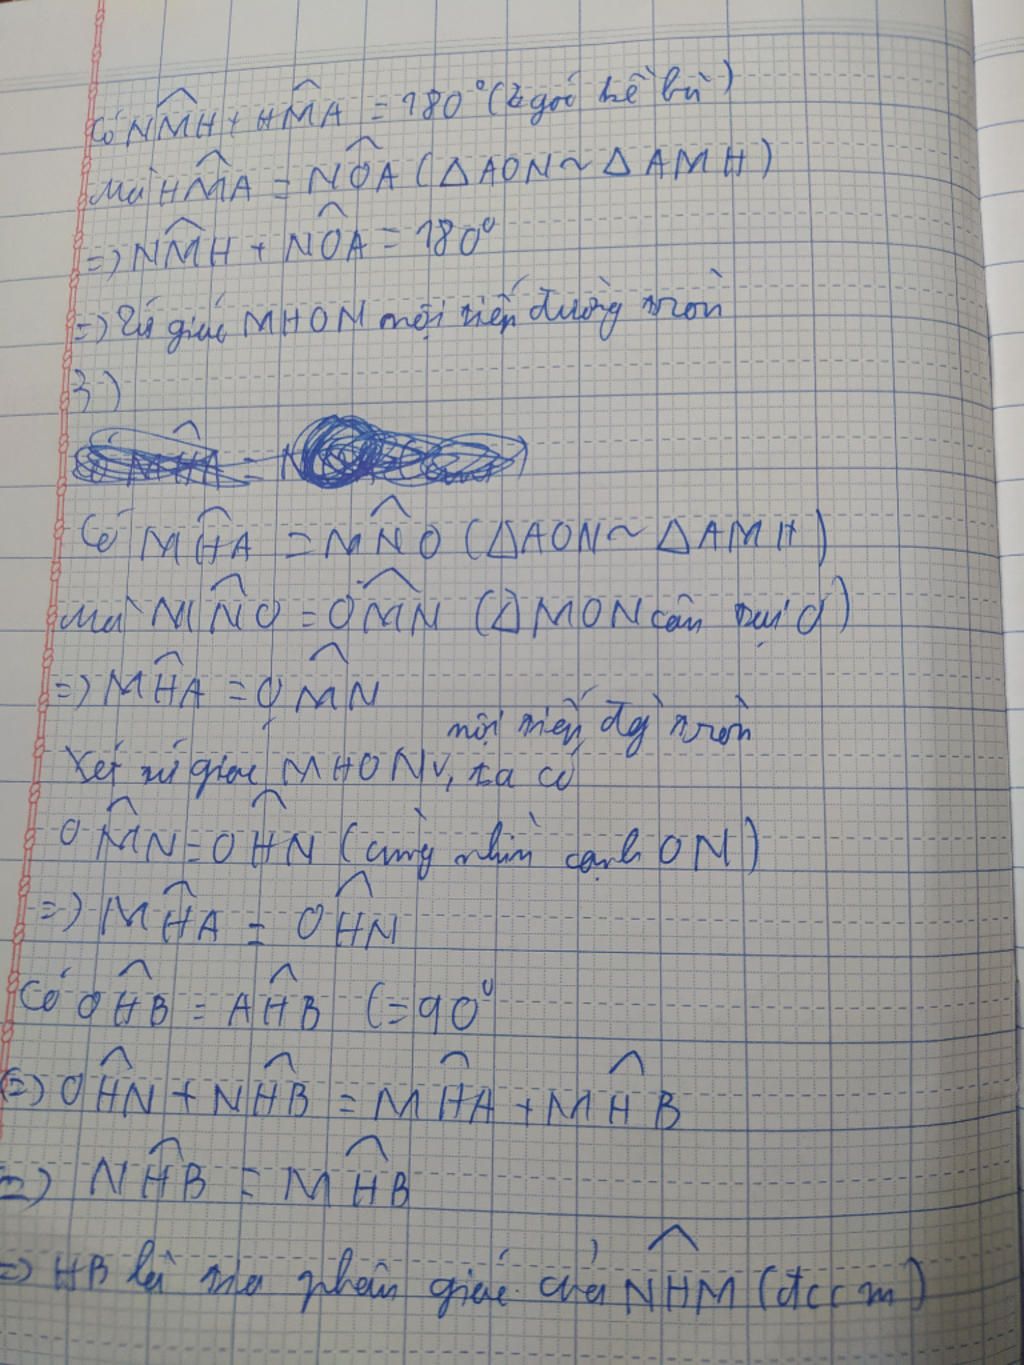 Có NM̂H + HM̂A = 180° (2 góc kề bù)
Mà HM̂A = NÔA (ΔAON ~ ΔAMH)
=> NM̂H + NÔA = 180°
=> Tứ giác MHON nội tiếp đường tròn
3)
Có MĤA = MN̂O (ΔAON ~ ΔAMH)
Mà MN̂O = OM̂N (ΔMON cân tại O)
=> MĤA = OM̂N
nội tiếp đg tròn
Xét tứ giác MHON v, ta có
OM̂N = OĤN (cùng nhìn cạnh ON)
=> MĤA = OĤN
Có OĤB = AĤB (= 90°
(=) OĤN + NĤB = MĤA + MĤB
=) NĤB = MĤB
=> HB là tia phân giác của NĤM (đccm)